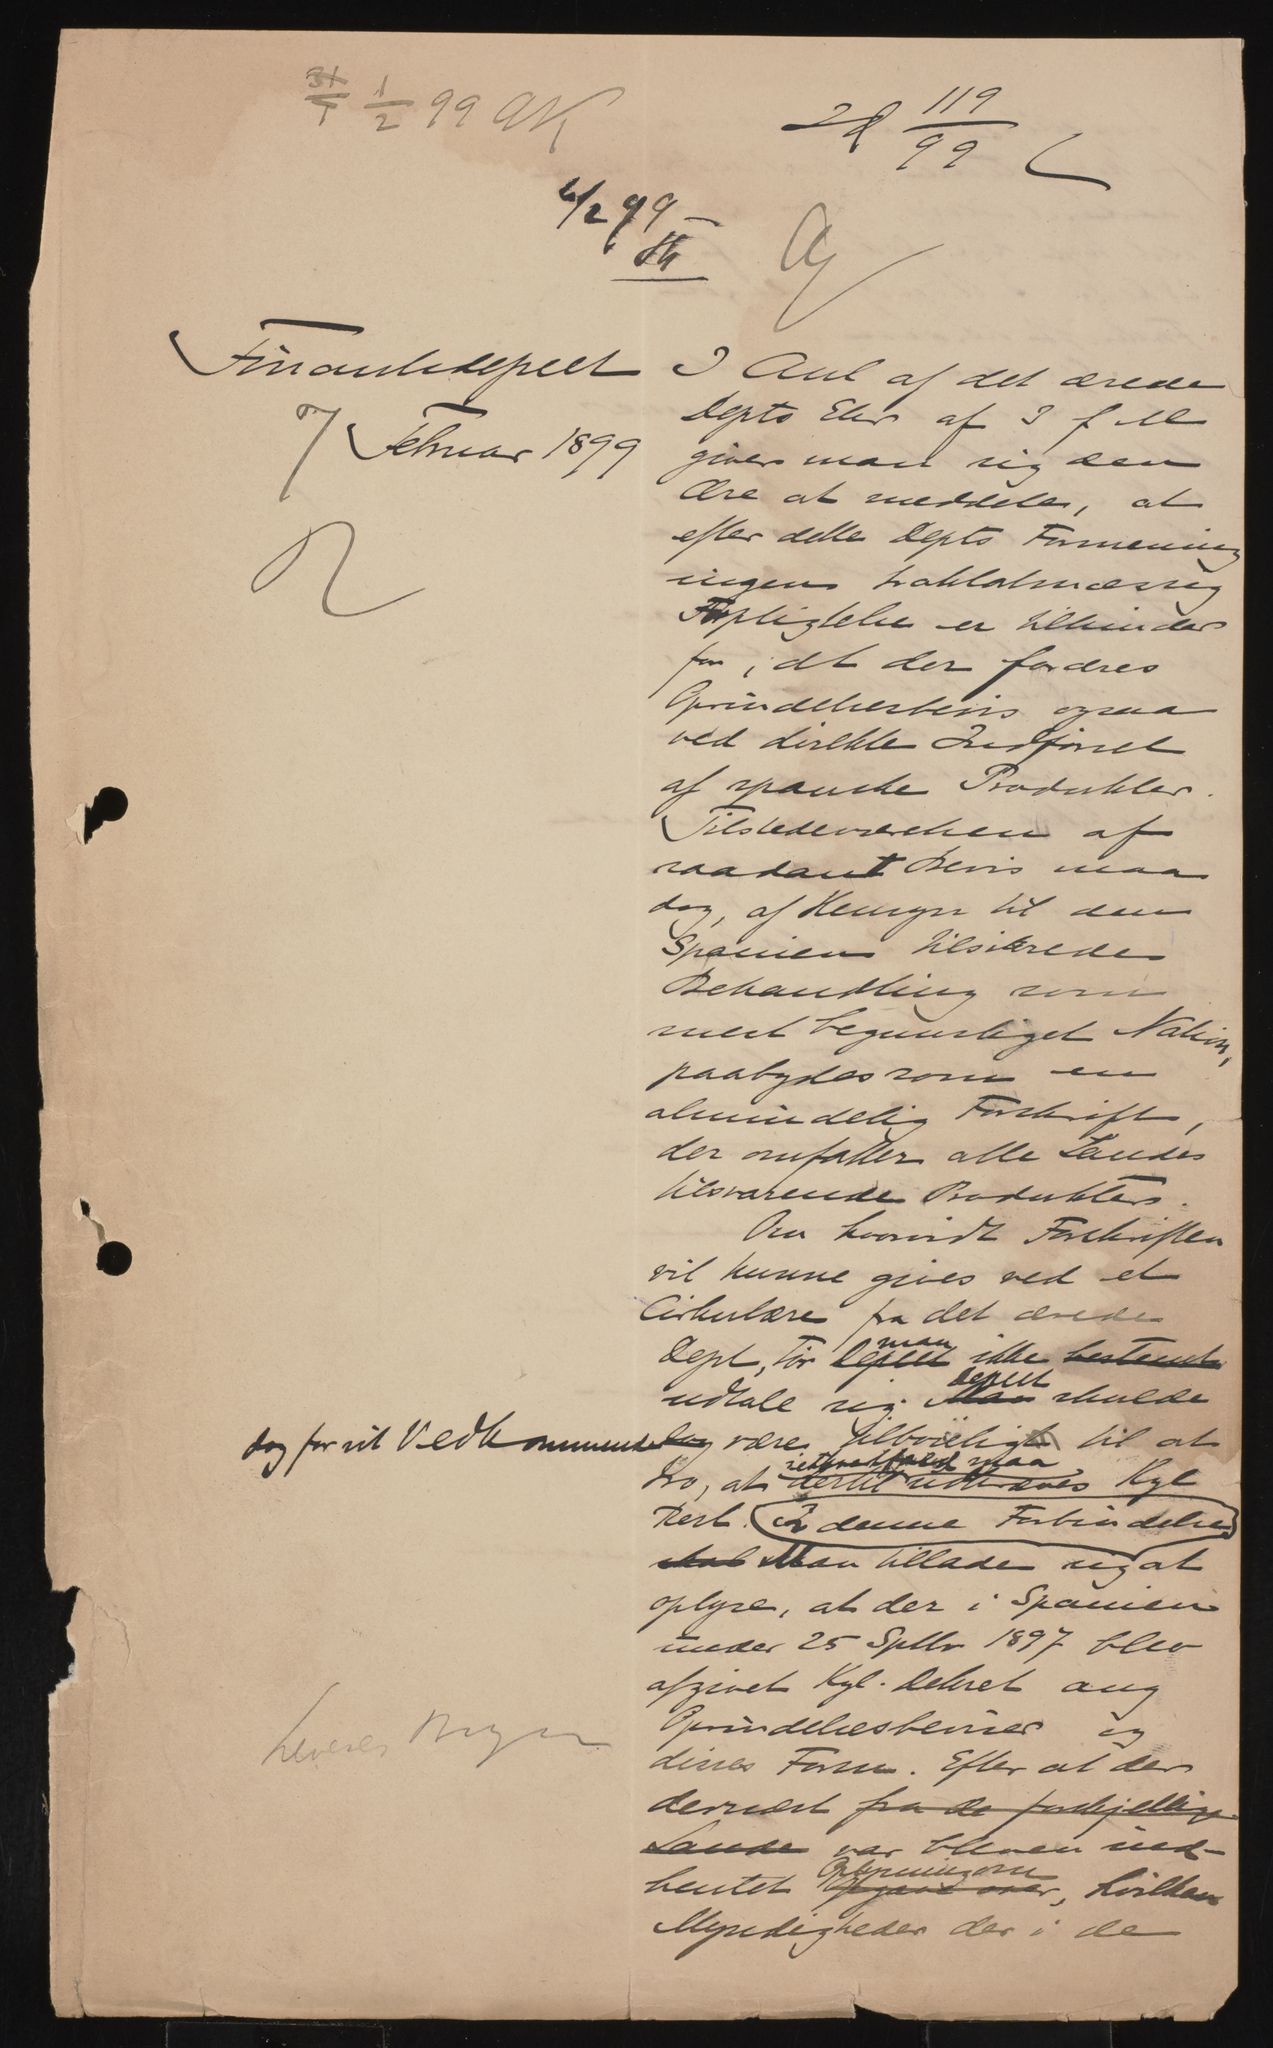 31/1 1/2 99 AK
28 119/99
6/2 99
Finantsdeptet
7 Februar 1899
I Anl af det ærede
Depts Skr af 3 f M
giver man sig den
Ære at meddele, at
efter dette Depts Formening
ingen traktatmæssig
Forpligtelse er tilhinder
for, at der fordres
Oprindelsesbevis ogsaa
ved direkte Indførsel
af spanske Produkter.
Tilstedeværelsen af
saadant Bevis maa
dog, af Hensyn til den
Spanien tilsikrede
Behandling som
mest begunstiget Nation,
paabydes som en
almindelig Forskrift,
der omfatter alle Landes
tilsvarende Produkter.
Om hvorvidt Forskriften
vil kunne gives ved et
Cirkulære fra det ærede
Dept, tør Deptet man ikke bestemt
udtale sig. Man Deptet skulde
dog for sit Vedkommende
dog være tilbøieligt til at
tro, at dertil udkræves maa Kgl
Resl. I denne Forbindelse
skal Man tillade sig at
oplyse, at der i Spanien
under 25 Septbr 1897 blev
afgivet Kgl. Dekret ang
Oprindelsesbeviser og
disses Form. Efter at der
dernæst fra de forskjellige
Lande var bleven ind-
hentet Opgave over Oplysning om, hvilken
Myndigheder der i de
leveres